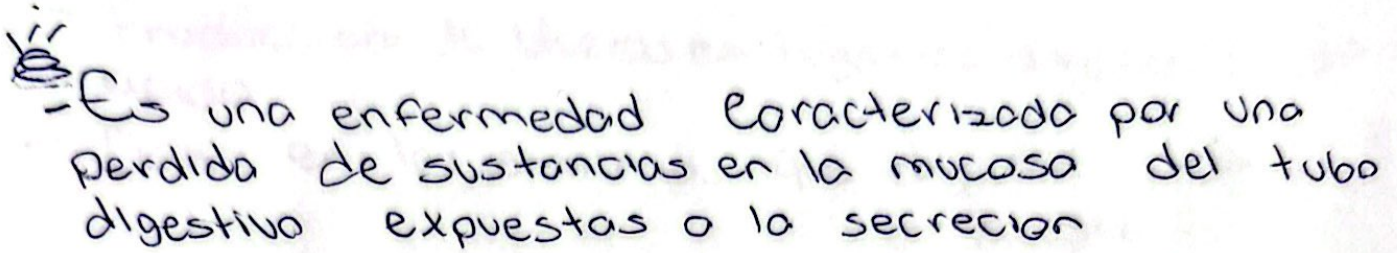 - Es una enfermedad caracterizada por una
perdida de sustancias en la mucosa del tubo
digestivo expuestas a la secrecion